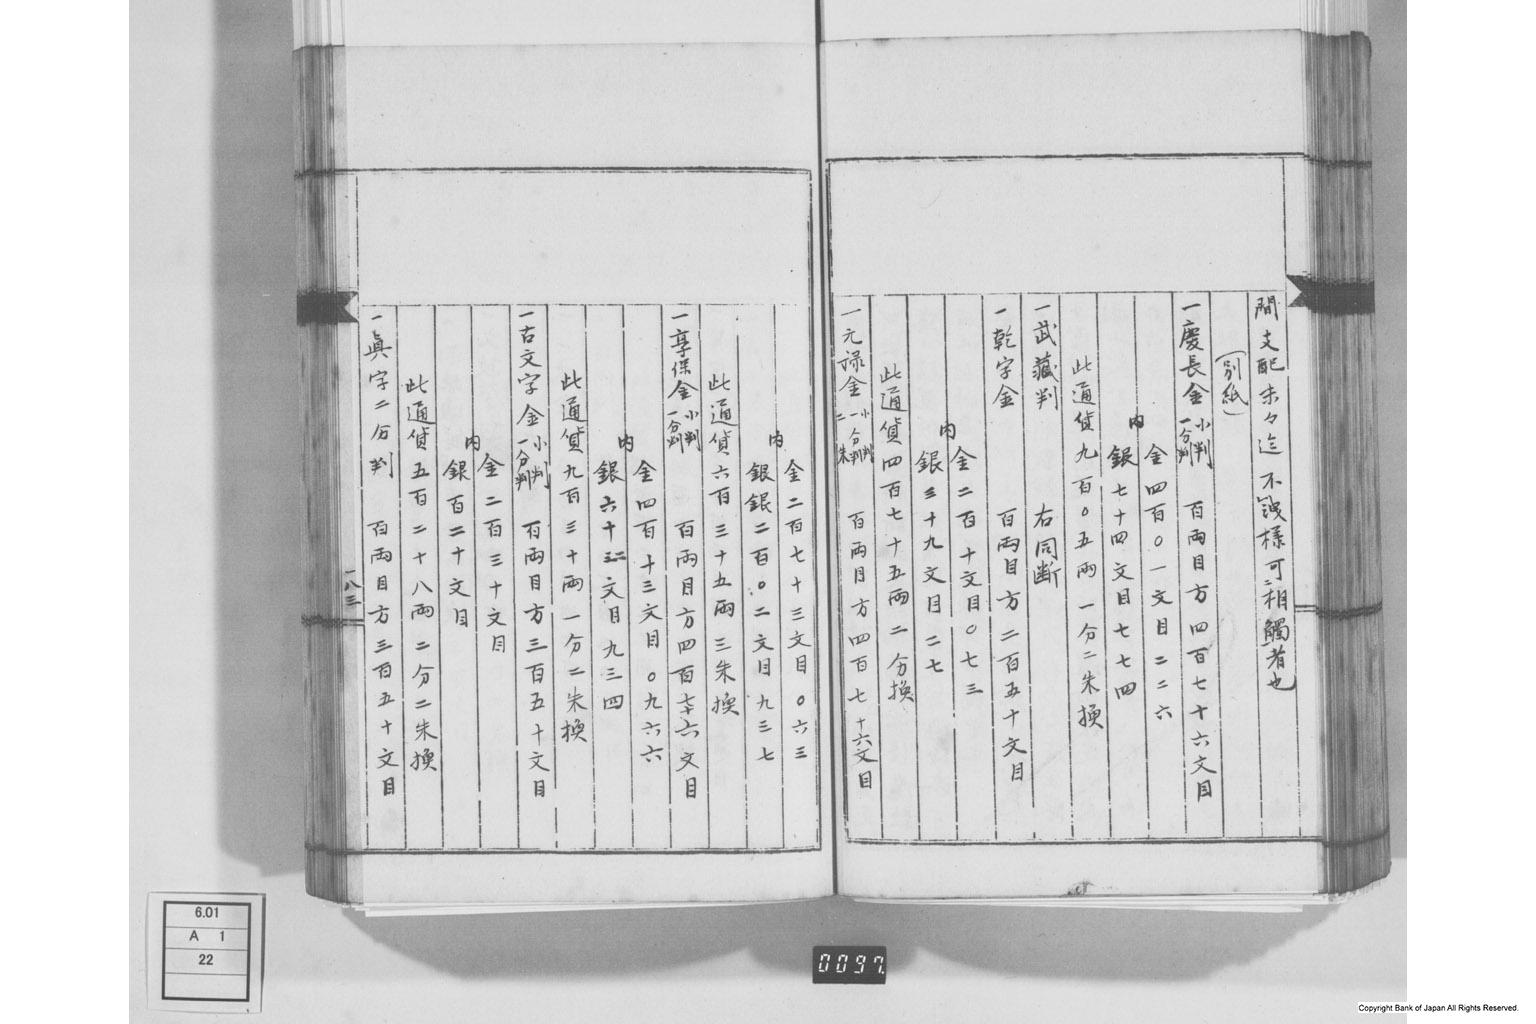 間支配末々迄不洩様可相觸者也
(別紙)
一慶長金 小判 一分判 百両目方四百七十六文目
内 金四百〇一文目二二六
銀七十四文目七七四
此通貨九百〇五両一分二朱換
一武藏判 右同断
一乾字金 百両目方二百五十文目
内 金二百十文目〇七三
銀三十九文目二七
此通貨四百七十五両二分換
一元祿金 小判 一分判 二朱 百両目方四百七十六文目
金二百七十三文目〇六三
内 銀銀二百〇二文目九三七
此通貨六百三十五両三朱換
一享保金 小判 一分判 百両目方四百七十六文目
金四百十三文目〇九六六
内 銀六十二文目九三四
此通貨九百三十両一分二朱換
一古文字金 小判 一分判 百両目方三百五十文目
金二百三十文目
内 銀百二十文目
此通貨五百二十八両二分二朱換
一眞字二分判 百両目方三百五十文目
一八三
6.01
A 1
22
0097
Copyright Bank of Japan All Rights Reserved.